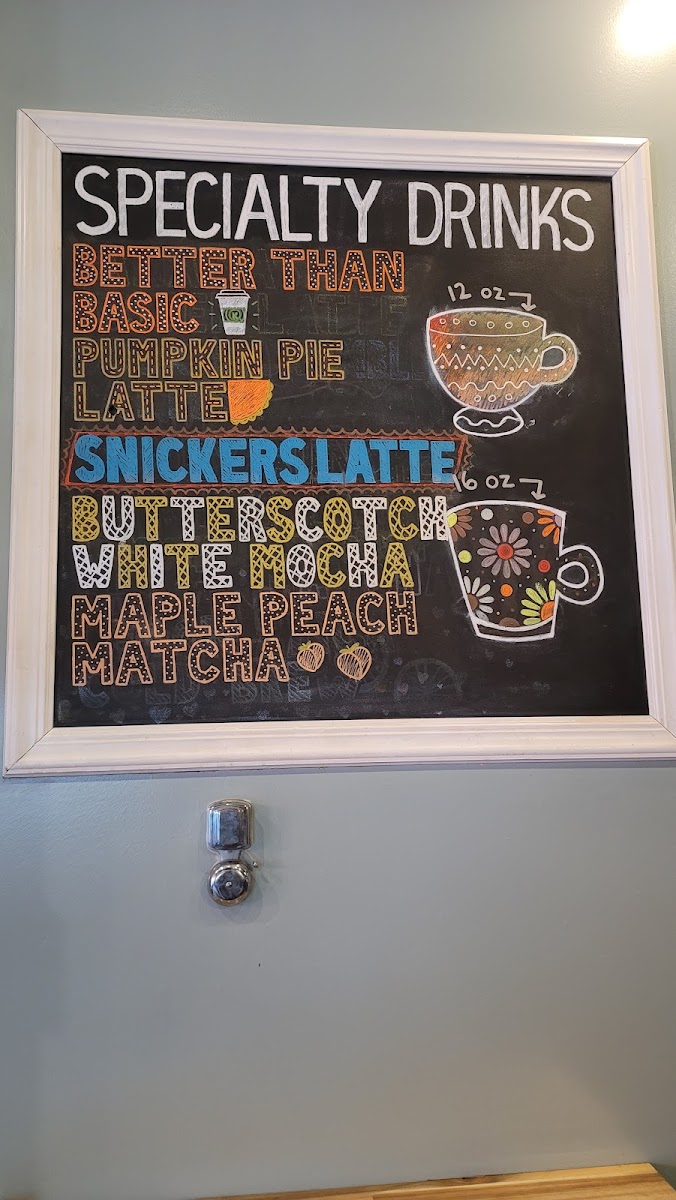 SPECIALTY DRINKS
BETTER THAN
BASIC
PUMPKIN PIE
LATTE
SNICKERS LATTE
BUTTERSCOTCH
WHITE MOCHA
MAPLE PEACH
MATCHA
12 OZ
16 OZ